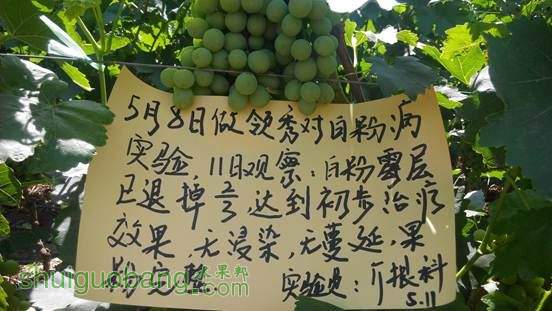 5月8日做领秀对白粉病
实验.11日观察:白粉霉层
已退掉2/3,达到初步治疗
效果,无浸染,无蔓延,果
粉完整
实验地:
5.11
shuiguobang.com
水果邦